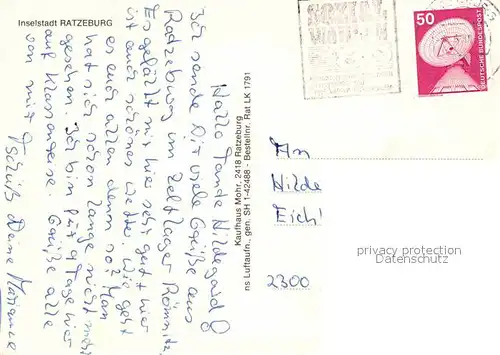 Inselstadt RATZEBURG
Hallo Tante Hildegard!
Ich sende Dir viele Grüße aus
Ratzeburg im Zeltlager Römnitz.
Es gefällt mir hier sehr gut hier
ist auch schönes Wetter. Wie geht
es euch allen denn so? Man
hat sich schon lange nicht mehr
gesehen. Ich bin für 9 Tage hier
auf Klassenreise. Grüße alle
von mir Tschüß Deine Marianne
Kaufhaus Mohr, 2418 Ratzeburg
ns Luftaufn., gen. SH 1-42488 - Bestellnr. Rat LK 1791
SOZIAL
WAHLEN
50
DEUTSCHE BUNDESPOST
An
Hilde
Eich
2300
privacy protection
Datenschutz